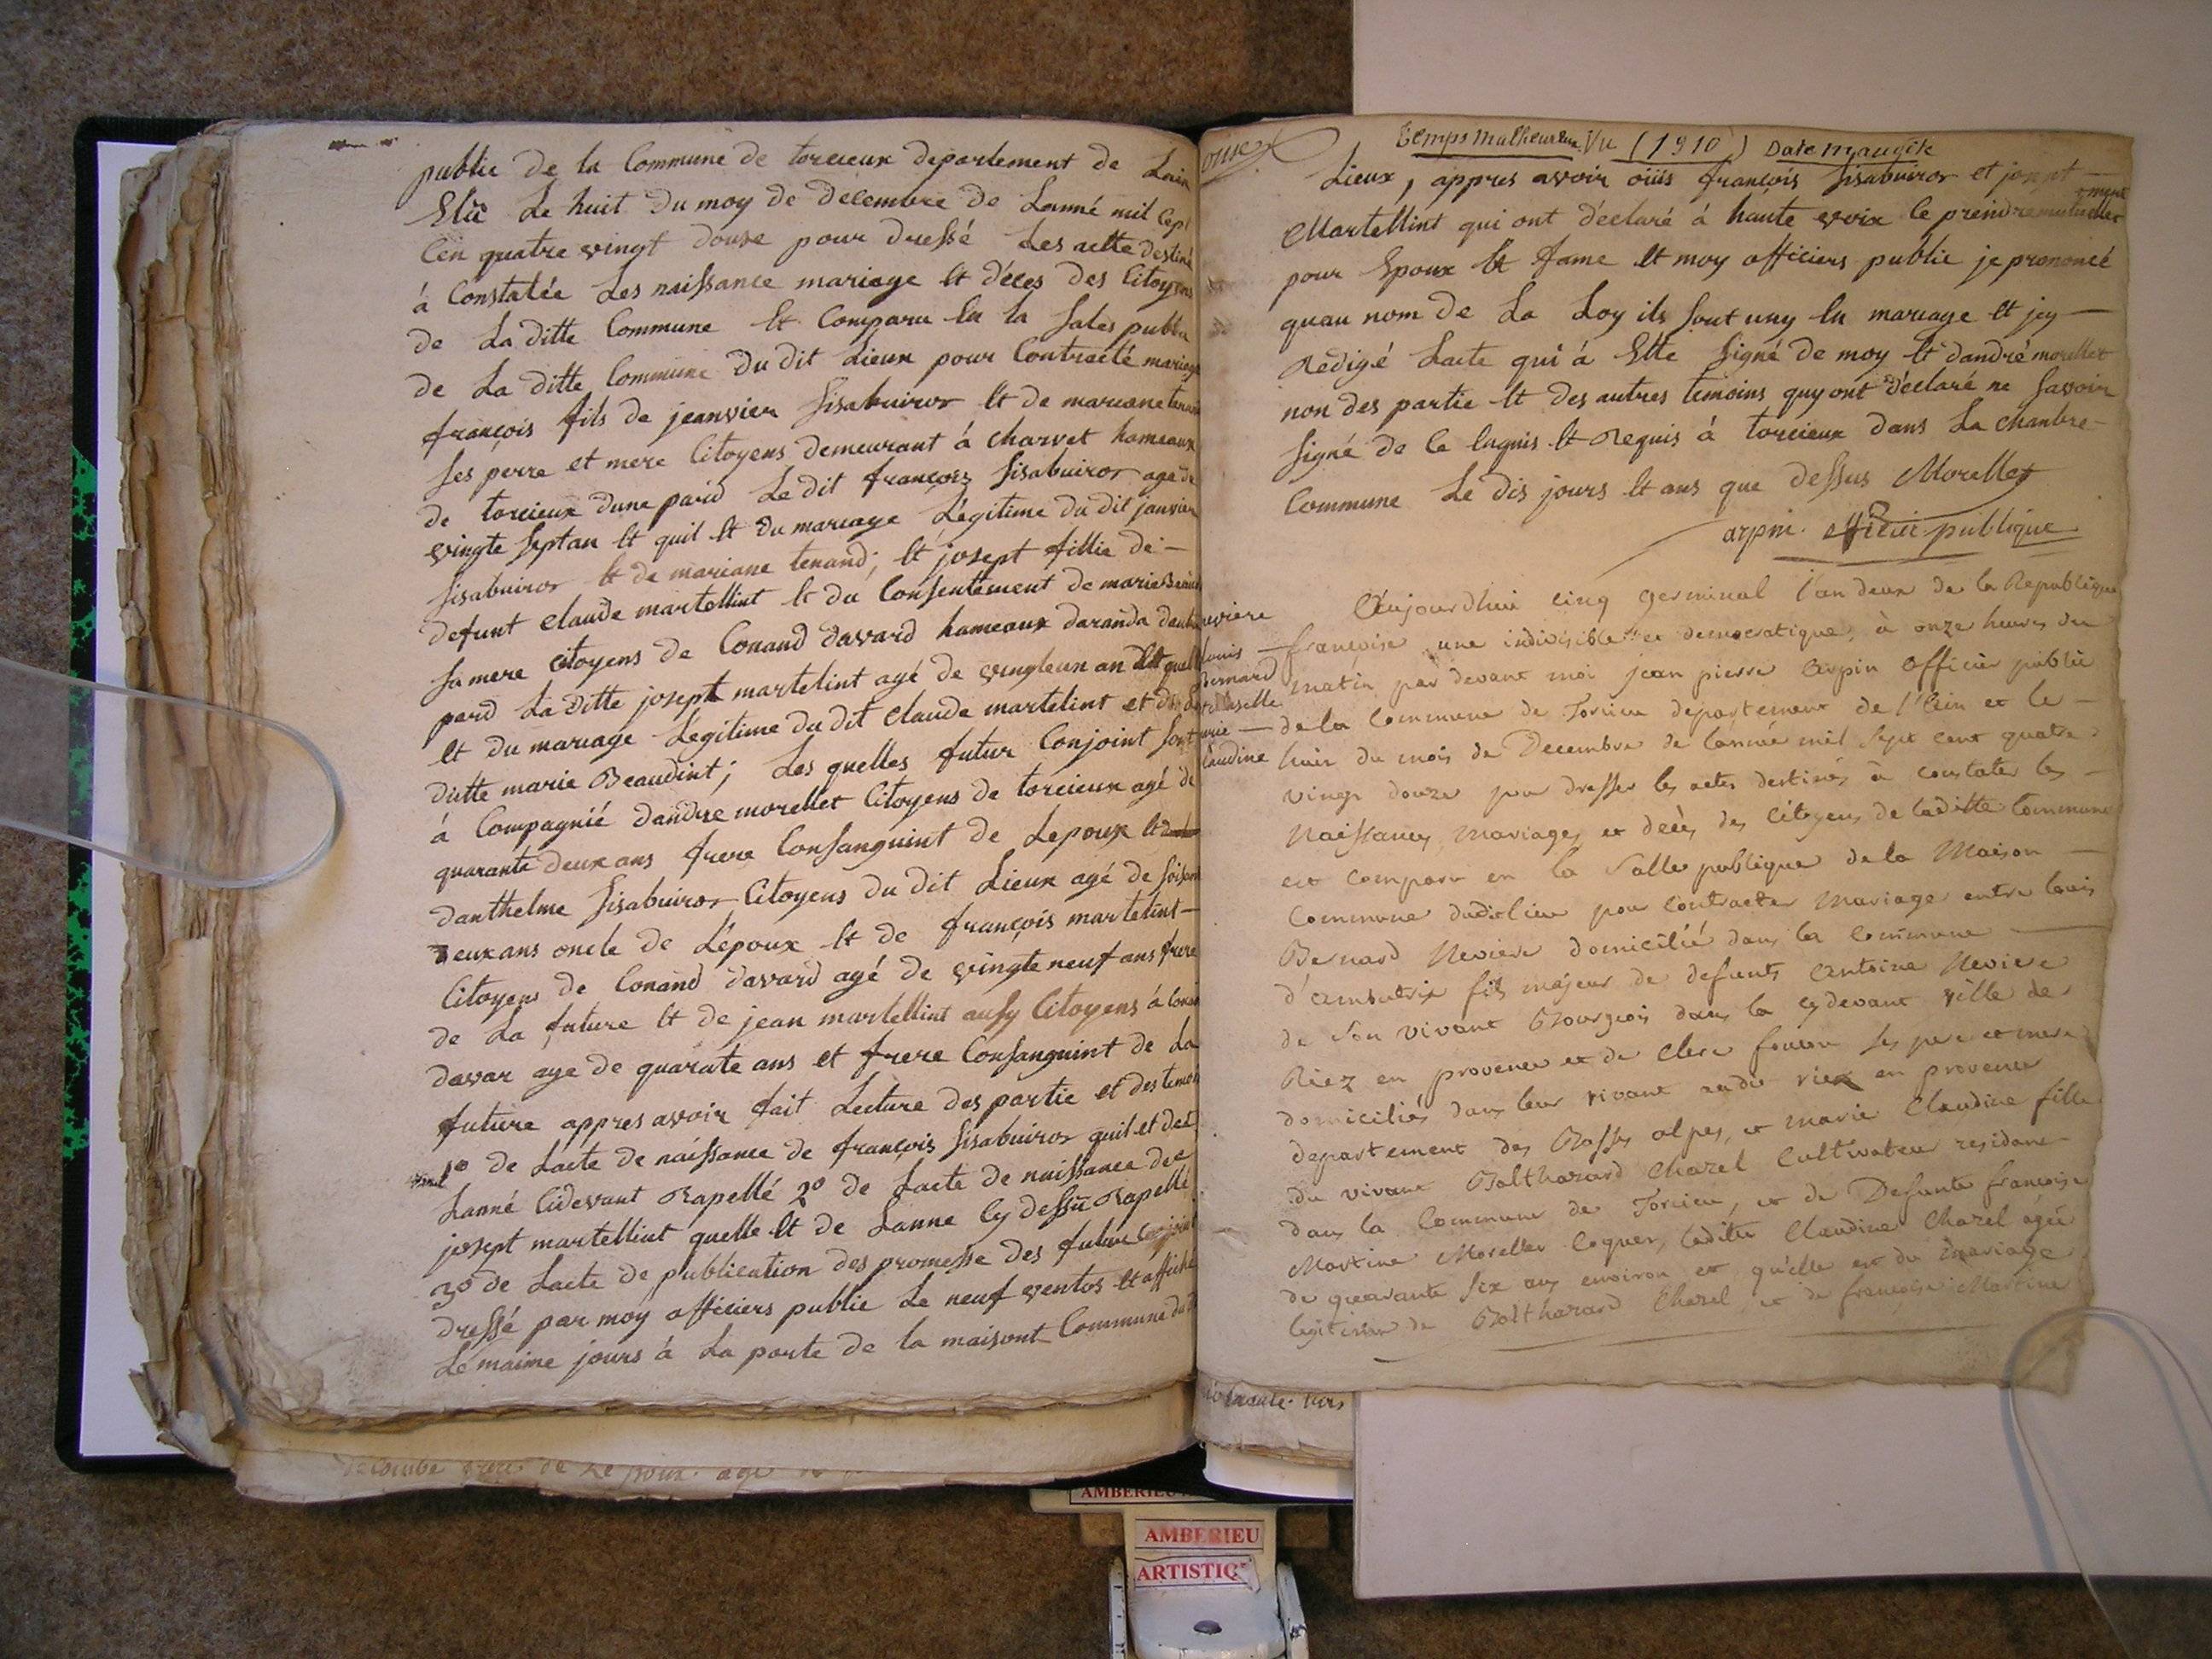 public de la Commune de torcieux departement de Lain
Elû Le huit Du moy de Decembre de Lanné mil Cept
Cen quatre vingt douse pour dressé Les actte destiné
à Constatée Les naissance mariage Et déces des Citoyens
de La ditte Commune Et Comparu En la Sales public
de La ditte Commune Du dit Lieux pour Contracté mariage
françois fils de jeanvier Sisabuiror Et de mariane tenand
ses perre et mere Citoyens demeurant à charvet hameaux
de torcieux dune pard Le dit françois Sisabuiror agé de
vingte septan Et quil Et du mariage Légitime du dit janvier
Sisabuiror Et de mariane tenand; Et josept fillie de
defunt claude martellint Et du Consentement de marie Beaudint
sa mere citoyens de Conand davard hameaux daranda dautre
pard La ditte josept martelint agé de vingteun an Et quelle
Et du mariage Légitime du dit claude martelint et de La
ditte marie Beaudint; Les quelles futur Conjoint sont
à Compagnié dandre morellet Citoyens de torcieux agé de
quarante deux ans frere Consanguint de Lepoux Et
danthelme Sisabuiror Citoyens du dit Lieux agé de soisente
deux ans oncle de Lépoux Et de françois martelint
Citoyens de Conand davard agé de vingte neuf ans frere
de La future Et de jean martellint aussy Citoyens à Conand
davar age de quarate ans et frere Consanguint de La
future appres avoir fait Lecture des partie et des temoin
1º de Lacte de naissance de françois Sisabuiror quil et de
Lanné Cidevant Rapellé 2º de Lacte de naissance de
josept martellint quelle Et de Lanne Cy dessû Rapellé
3º de Lacte de publication des promesse des futur Conjoint
dressé par moy officiers public Le neuf ventos Et affiché
Le maime jours à La porte de la maisont Commune du dit
decombe frere de Le poux age
Temps malheureux Vu (1910) Date
Lieux, appres avoir oüis françois Sisabuiror et josept
Martellint qui ont déclaré à haute voix ce prendre mutuelle
ment
pour Epoux Et fame Et moy officiers public je prononcé
quau nom de La Loy ils sont uny En mariage Et jey
Rédigé Lacte qui à Ette signé de moy Et dandré morellet
non des partie Et des autres temoins quy ont déclaré ne savoir
signé de ce Enquis Et Requis à torcieux dans La chanbre
Commune Le dis jours Et ans que dessus Morellet
arpin officier publique
Aujourdhui cinq germinal l'an deux de la Republique
françoise une indivisible et democratique, à onze heures du
matin par devant moi jean pierre arpin officier public
de la Commune de Torcieu departement de l'Ein et le
huit du mois de Decembre de lannée mil sept cent quatre
vingt douze pour dresser les actes destinés à constater les
Naissances mariages et decès des citoyens de laditte Commune
est comparu en la salle publique de la Maison
Commune dudit lieu pour contracter mariage entre louis
Bernard Neviere domicilié dans la commune
d'ambutrix fils majeur de defunts antoine Neviere
de son vivant Bourgeois dans la cydevant ville de
Riez en provence et de Clere ses pere et mere
domiciliés dans leur vivant audit riez en provence
departement des Basses alpes, et marie Claudine fille
du vivant Balthazard Chazel Cultivateur residant
dans la Commune de Torcieu, et de Defunte françoise
Martine Morellet laditte Claudine Chazel agée
de quarante six ans environ et qu'elle est du mariage
legitime de Balthazard Chazel et de françoise Martine
louis
Bernard
AMBERIEU
AMBERIEU
ARTISTIQ